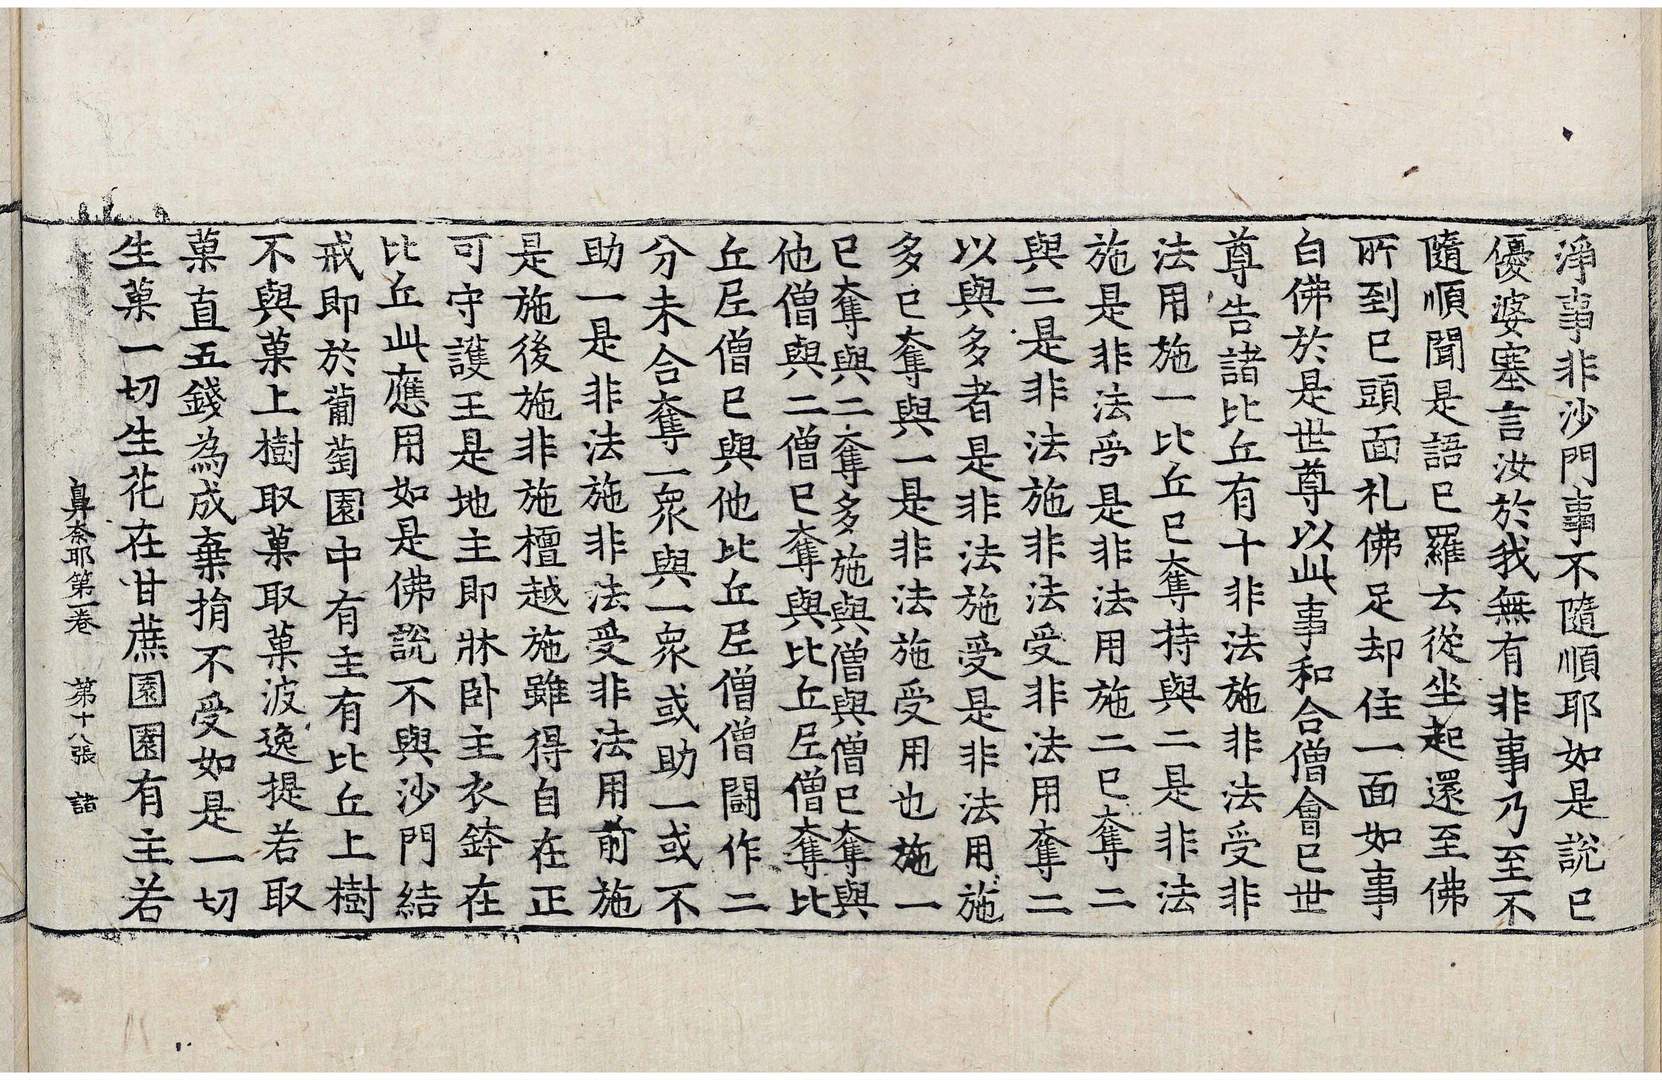 淨事非沙門事不隨順耶如是說已
優婆塞言汝於我無有非事乃至不
隨順聞是語已羅云從坐起還至佛
所到已頭面礼佛足却住一面如事
白佛於是世尊以此事和合僧會已世
尊告諸比丘有十非法施非法受非
法用施一比丘已奪持與二是非法
施是非法受是非法用施二已奪二
與二是非法施非法受非法用奪二
以與多者是非法施受是非法用施
多已奪與一是非法施受用也施一
已奪與二奪多施與僧與僧已奪與
他僧與二僧已奪與比丘尼僧奪比
丘尼僧已與他比丘尼僧僧鬪作二
分未合奪一眾與一眾或助一或不
助一是非法施非法受非法用前施
是施後施非施檀越施雖得自在正
可守護王是地主即牀臥主衣鉢在
比丘此應用如是佛說不與沙門結
戒即於葡萄園中有主有比丘上樹
不與菓上樹取菓取菓波逸提若取
菓直五錢為成棄捐不受如是一切
生菓一切生花在甘蔗園園有主若
鼻奈耶第一卷 第十八張 諸